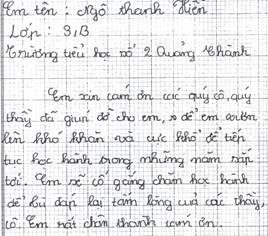 Em tên : Ngô thanh Hiền
Lớp : 3/B
Trường tiểu học số 2 Quảng Thành
Em xin cảm ơn các quý cô, quý
thầy đã giúp đỡ cho em, để em vươn
lên khó khăn và cực khổ để tiếp
tục học hành trong những năm sắp
tới. Em sẽ cố gắng chăm học hành
để bù đáp lại tấm lòng của các thầy,
cô. Em rất chân thành cảm ơn.